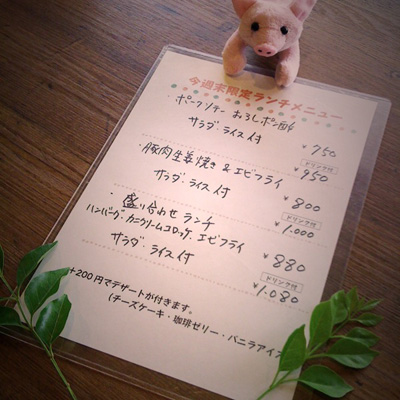 今週末限定ランチメニュー
・ポークソテー おろしポン酢
サラダ・ライス付 ¥750
ドリンク付
¥950
・豚肉生姜焼き & エビフライ
サラダ・ライス付 ¥800
ドリンク付
¥1.000
・盛り合わせ ランチ
ハンバーグ・カニクリームコロッケ・エビフライ
サラダ・ライス付 ¥880
ドリンク付
¥1.080
+200円でデザートが付きます。
(チーズケーキ・珈琲ゼリー・バニラアイス